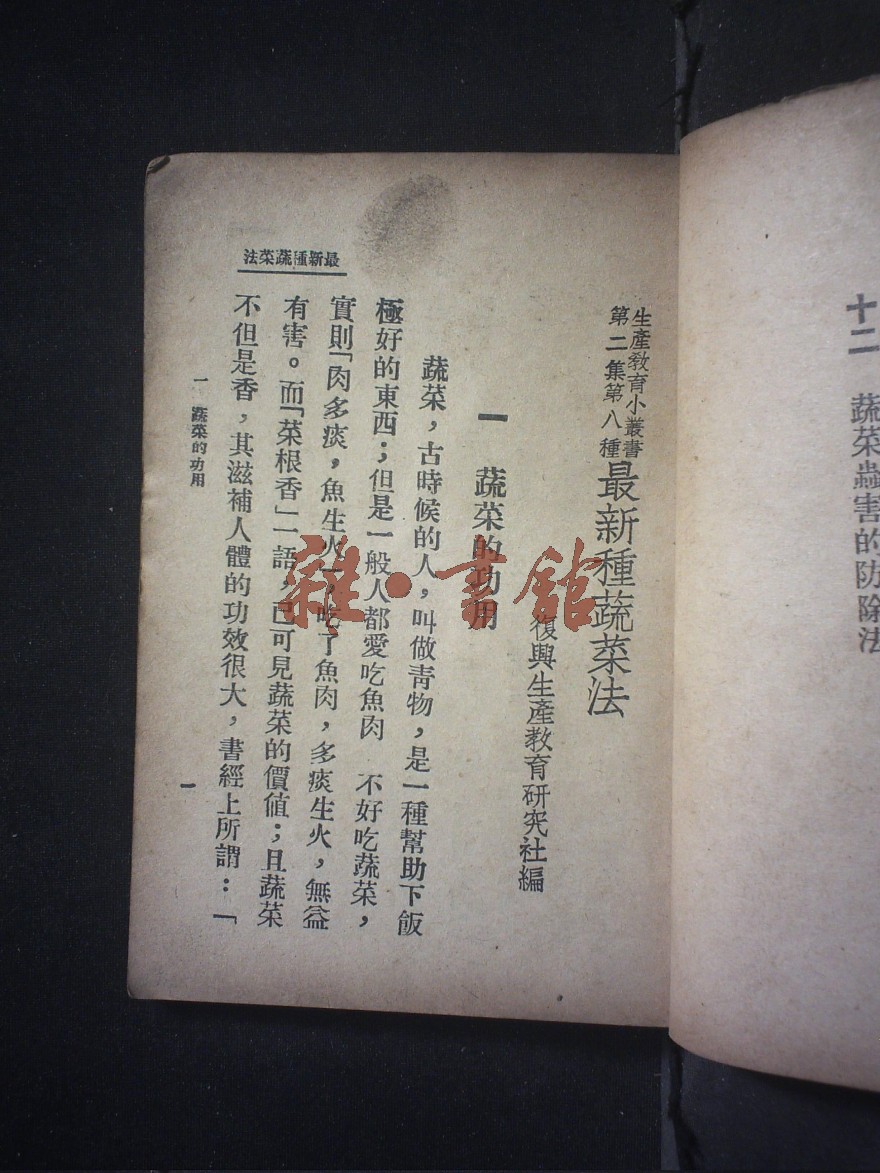 十二　蔬菜蟲害的防除法
生產教育小叢書
第二集第八種
最新種蔬菜法
復興生產教育研究社編
一　蔬菜的功用
蔬菜，古時候的人，叫做青物，是一種幫助下飯
極好的東西；但是一般人都愛吃魚肉　不好吃蔬菜，
實則「肉多痰，魚生火」，吃了魚肉，多痰生火，無益
有害。而「菜根香」一語，已可見蔬菜的價值；且蔬菜
不但是香，其滋補人體的功效很大，書經上所謂：「
最新種蔬菜法
一　蔬菜的功用
一
雜·書館